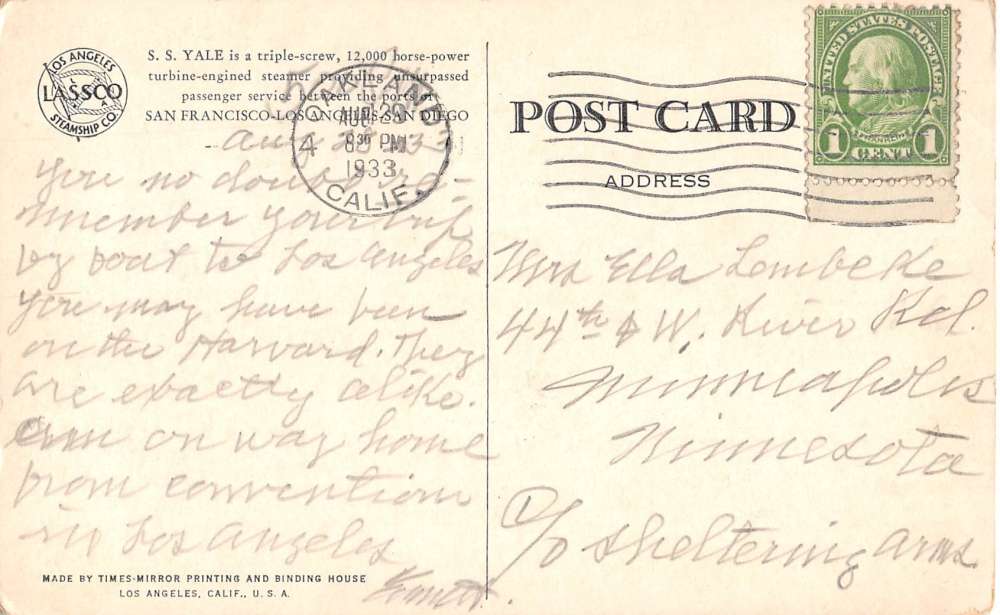 LOS ANGELES
LASSCO
STEAMSHIP CO.
S. S. YALE is a triple-screw, 12,000 horse-power
turbine-engined steamer providing unsurpassed
passenger service between the ports of
SAN FRANCISCO-LOS ANGELES-SAN DIEGO
OAKLAND
AUG
4 830 PM
1933
CALIF.
POST CARD
ADDRESS
UNITED STATES POSTAGE
FRANKLIN
1 CENT 1
Aug
You no doubt re-
member your trip
by boat to Los Angeles
You may have been
on the Harvard. They
are exactly alike.
am on way home
from convention
in Los Angeles
Mrs Ella Lembeke
44th & W. River Rd.
Minneapolis
Minnesota
c/o Sheltering Arms
MADE BY TIMES-MIRROR PRINTING AND BINDING HOUSE
LOS ANGELES, CALIF., U. S. A.